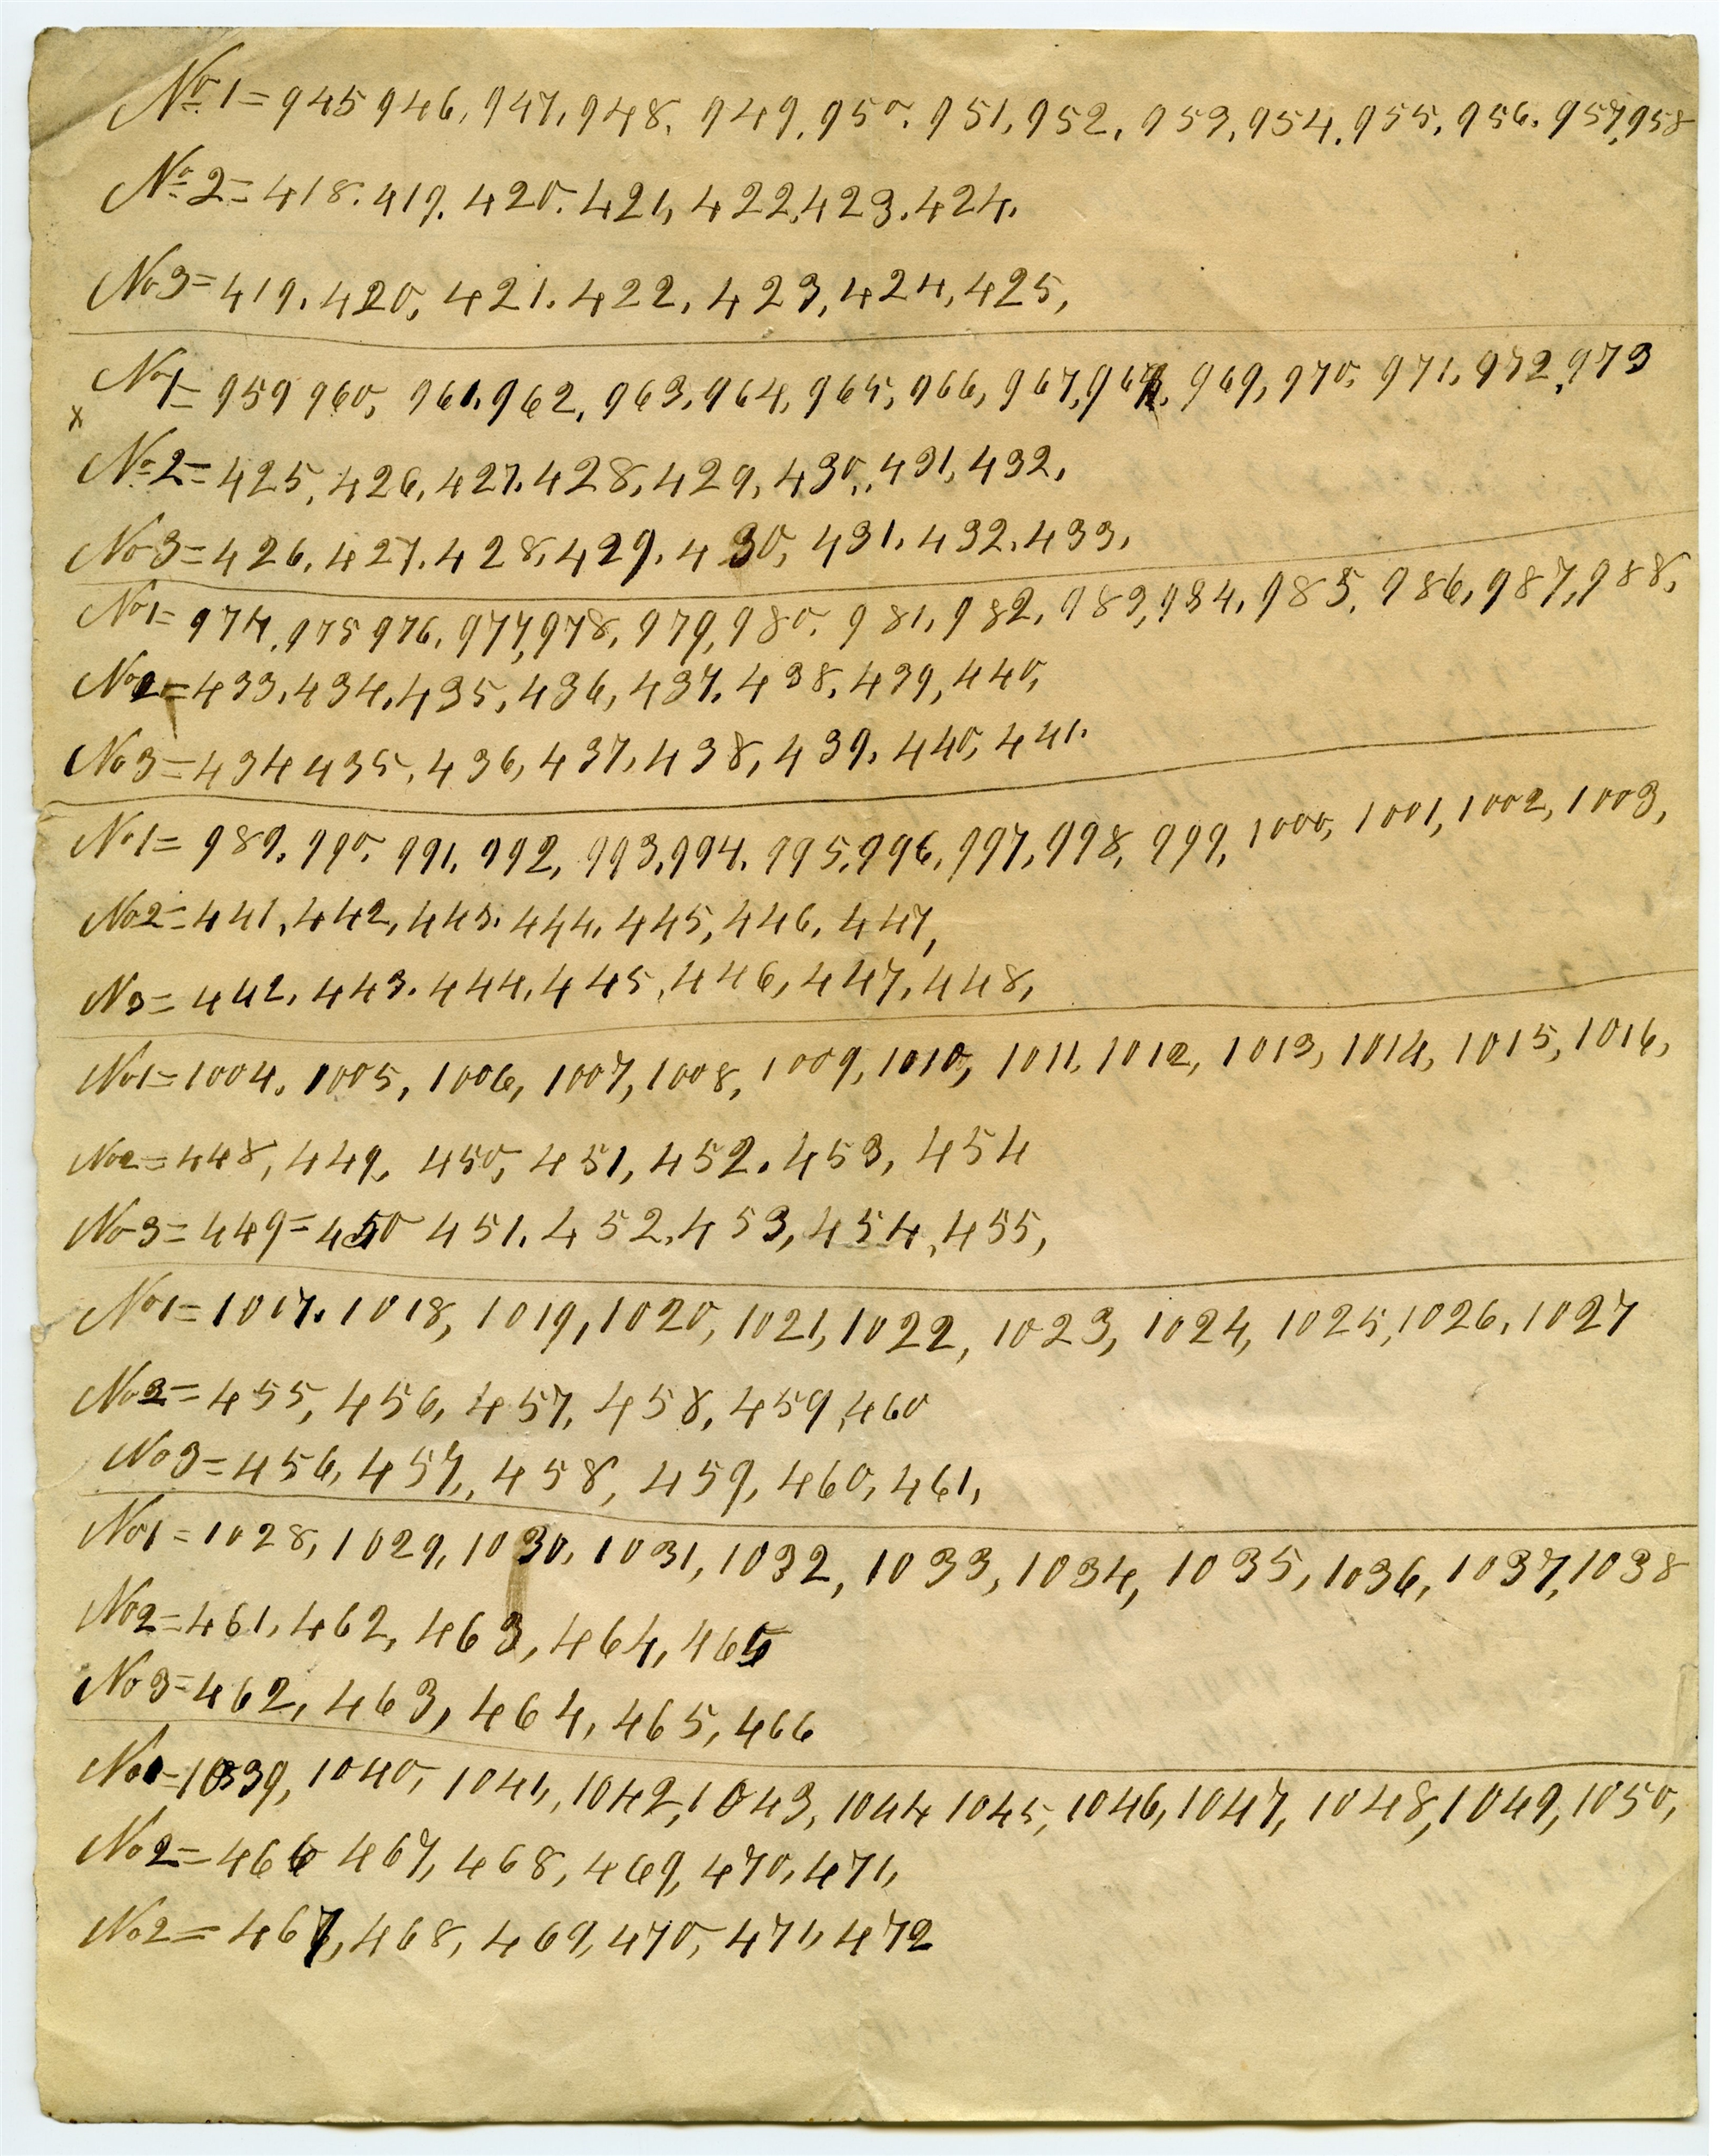 No 1 = 945 946, 947, 948, 949, 950, 951, 952, 953, 954, 955, 956, 957, 958
No 2 = 418. 419. 420. 421, 422, 423. 424.
No 3 = 419. 420, 421. 422, 423, 424, 425,
x No 1 = 959 960, 961, 962, 963, 964, 965, 966, 967, 968, 969, 970, 971, 972, 973
No 2 = 425, 426, 427. 428, 429, 430, 431, 432,
No 3 = 426, 427, 428, 429. 430, 431, 432, 433,
No 1 = 974, 975 976, 977, 978, 979, 980, 981, 982, 983, 984, 985, 986, 987, 988,
No 2 = 433, 434, 435, 436, 437, 438, 439, 440,
No 3 = 434 435, 436, 437, 438, 439, 440, 441.
No 1 = 989, 990, 991, 992, 993, 994, 995, 996, 997, 998, 999, 1000, 1001, 1002, 1003,
No 2 = 441, 442, 443. 444, 445, 446, 447,
N 3 = 442, 443. 444, 445, 446, 447, 448,
No 1 = 1004, 1005, 1006, 1007, 1008, 1009, 1010, 1011, 1012, 1013, 1014, 1015, 1016,
No 2 = 448, 449, 450, 451, 452. 453, 454
No 3 = 449 = 450 451, 452, 453, 454, 455,
No 1 = 1017. 1018, 1019, 1020, 1021, 1022, 1023, 1024, 1025, 1026, 1027
No 2 = 455, 456, 457, 458, 459, 460
No 3 = 456, 457, 458, 459, 460, 461,
No 1 = 1028, 1029, 1030, 1031, 1032, 1033, 1034, 1035, 1036, 1037, 1038
No 2 = 461, 462, 463, 464, 465
No 3 = 462, 463, 464, 465, 466
No 1 = 1039, 1040, 1041, 1042, 1043, 1044 1045, 1046, 1047, 1048, 1049, 1050,
No 2 = 466 467, 468, 469, 470, 471,
No 2 = 467, 468, 469, 470, 471, 472